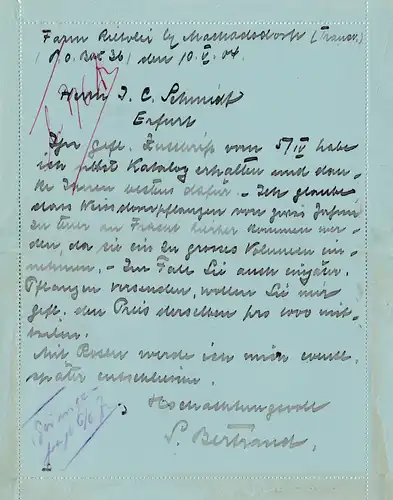 Farm Rietvlei by Machadodorf (Transv.)
P.O. Box 36, den 10. V. 04.
Herrn J. C. Schmidt
Erfurt
Ihr gefl. Zuschrift vom 5/IV habe
ich nebst Katalog erhalten und dan-
ke Ihnen bestens dafür. – Ich glaube
dass Weissdornpflanzen von zwei Jahren
zu teuer an Fracht hierher kommen wer-
den, da sie ein zu grosses Volumen ein-
nehmen. – Im Falle Sie auch einjähr.
Pflanzen versenden, wollen Sie mir
gefl. den Preis derselben pro 1000 mit-
teilen.
Mit Rosen werde ich mich eventl.
später entschliessen.
Hochachtungsvoll
S. Bertrand.